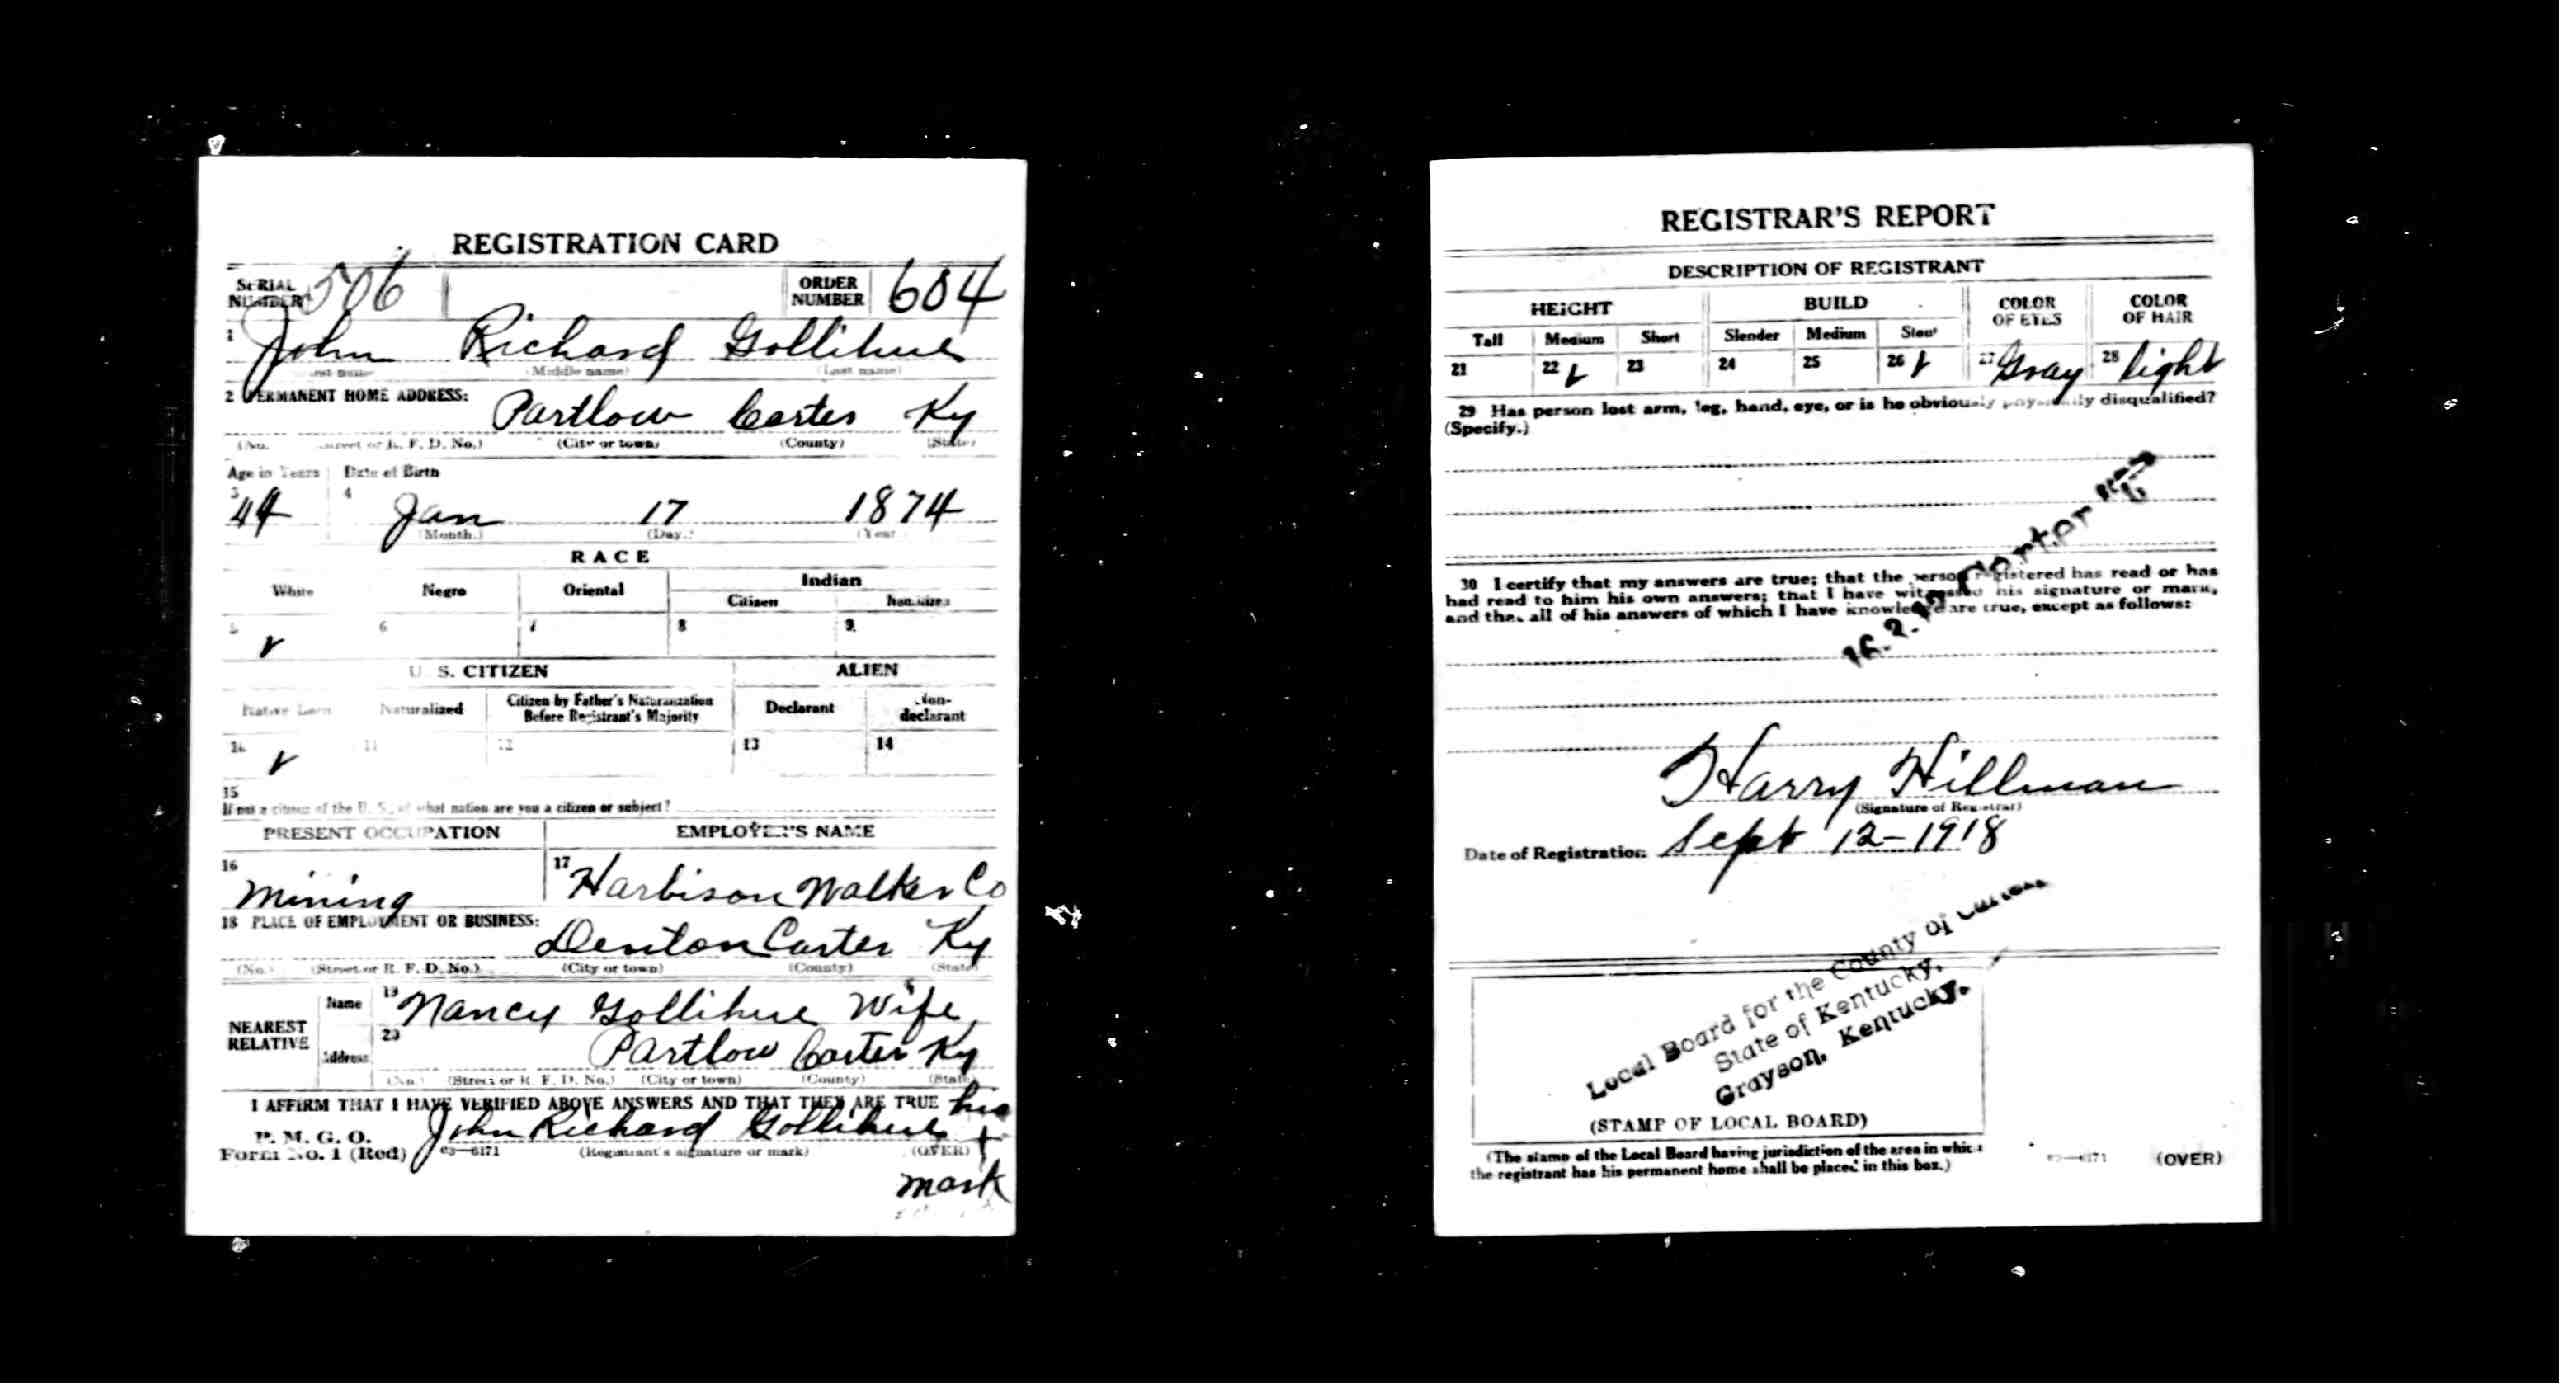 REGISTRATION CARD
SERIAL NUMBER 506 ORDER NUMBER 604
1 John Richard Gollihue
(Middle name) (Last name)
2 PERMANENT HOME ADDRESS: Partlow Carter Ky
(No. Street or R. F. D. No.) (City or town) (County) (State)
Age in Years Date of Birth
3 44 4 Jan 17 1874
(Month.) (Day.) (Year
RACE
White Negro Oriental Indian
Citizen Noncitizen
5 ✓ 6 7 8 9
U. S. CITIZEN ALIEN
Native Born Naturalized Citizen by Father's Naturalization Before Registrant's Majority Declarant Non-declarant
10 ✓ 11 12 13 14
15
If not a citizen of the U. S., of what nation are you a citizen or subject?
PRESENT OCCUPATION EMPLOYER'S NAME
16 Mining 17 Harbison Walker Co
18 PLACE OF EMPLOYMENT OR BUSINESS: Denton Carter Ky
(No.) (Street or R. F. D. No.) (City or town) (County) (State)
NEAREST RELATIVE Name 19 Nancy Gollihue Wife
Address 20 Partlow Carter Ky
(No.) (Street or R. F. D. No.) (City or town) (County) (State)
I AFFIRM THAT I HAVE VERIFIED ABOVE ANSWERS AND THAT THEY ARE TRUE his
P. M. G. O.
Form No. 1 (Red) John Richard Gollihue +
03—6171 (Registrant's signature or mark) (OVER)
mark
REGISTRAR'S REPORT
DESCRIPTION OF REGISTRANT
HEIGHT BUILD COLOR OF EYES COLOR OF HAIR
Tall Medium Short Slender Medium Stout
21 22 ✓ 23 24 25 26 ✓ 27 Gray 28 light
29 Has person lost arm, leg, hand, eye, or is he obviously physically disqualified?
(Specify.)
30 I certify that my answers are true; that the person registered has read or has
had read to him his own answers; that I have witnessed his signature or mark,
and that all of his answers of which I have knowledge are true, except as follows:
Harry Hillman
(Signature of Registrar)
Date of Registration Sept 12-1918
Local Board for the County of Carter,
State of Kentucky,
Grayson, Kentucky.
(STAMP OF LOCAL BOARD)
(The stamp of the Local Board having jurisdiction of the area in which
the registrant has his permanent home shall be placed in this box.)
03—6171 (OVER)